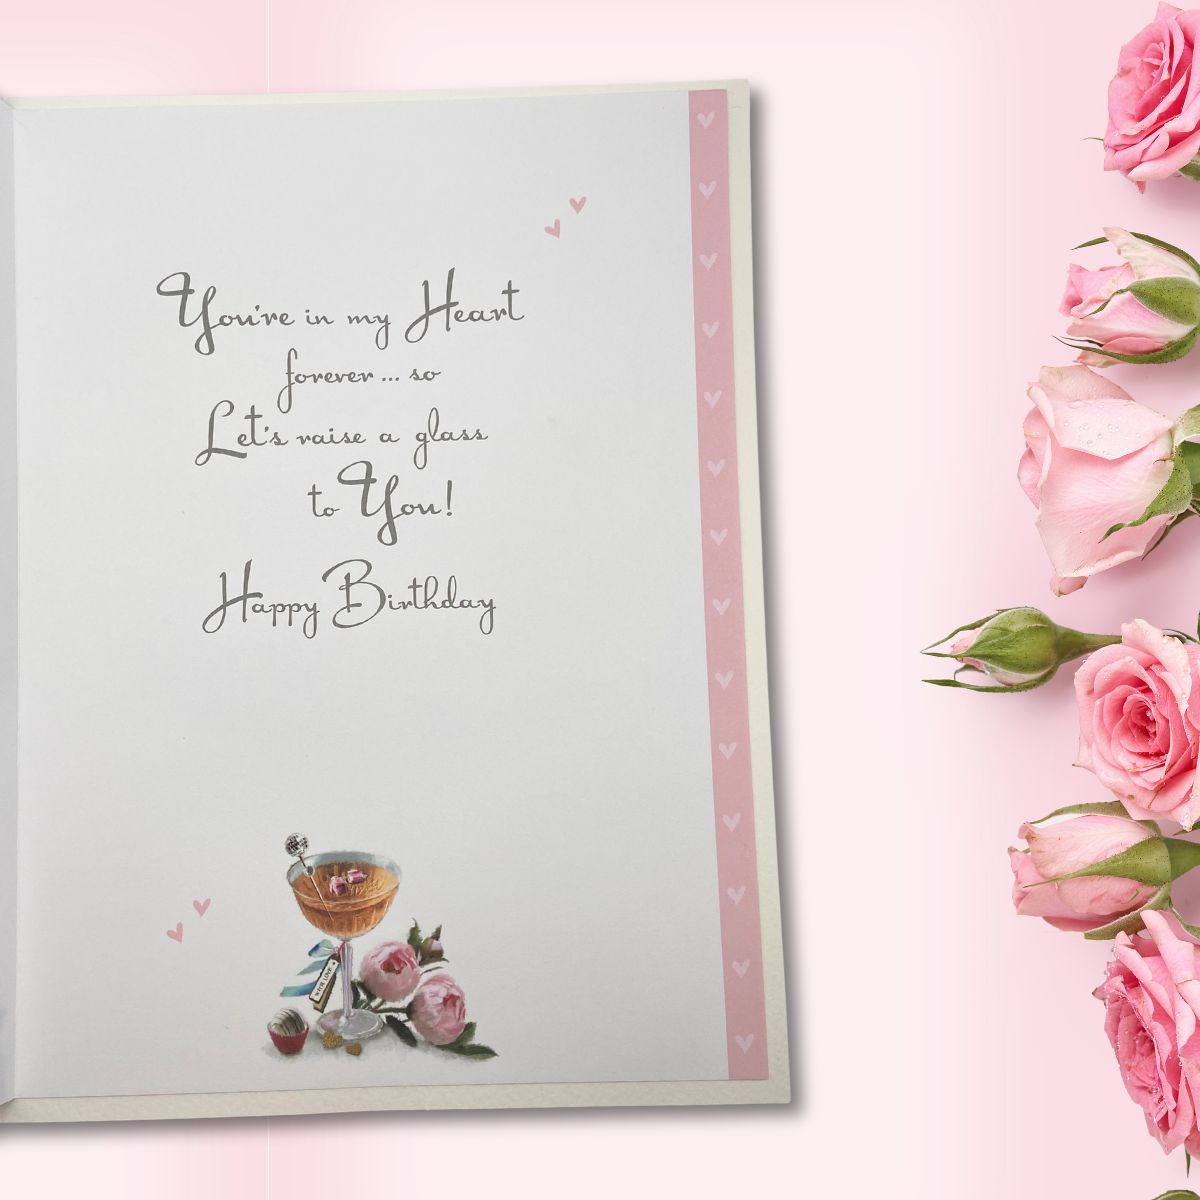 You're in my Heart
forever ... so
Let's raise a glass
to You!
Happy Birthday
WITH LOVE